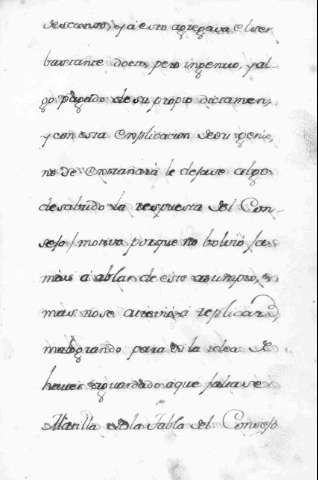 descanso, y a esto agregava el ser
bastante docto, pero ingenuo, y al
go pagado de su propio dictamen,
y con esta complicacion de su genio
no de extrañará le dejase algo
desabrido la respuesta del Con-
sejo / motivo porque no bolvió ja
mas a ablar de este asumpto,
mas no se atrevió a replicar
malogrando para la idea de
haver aguardado a que faltase
Matilla de la Tabla del Consejo